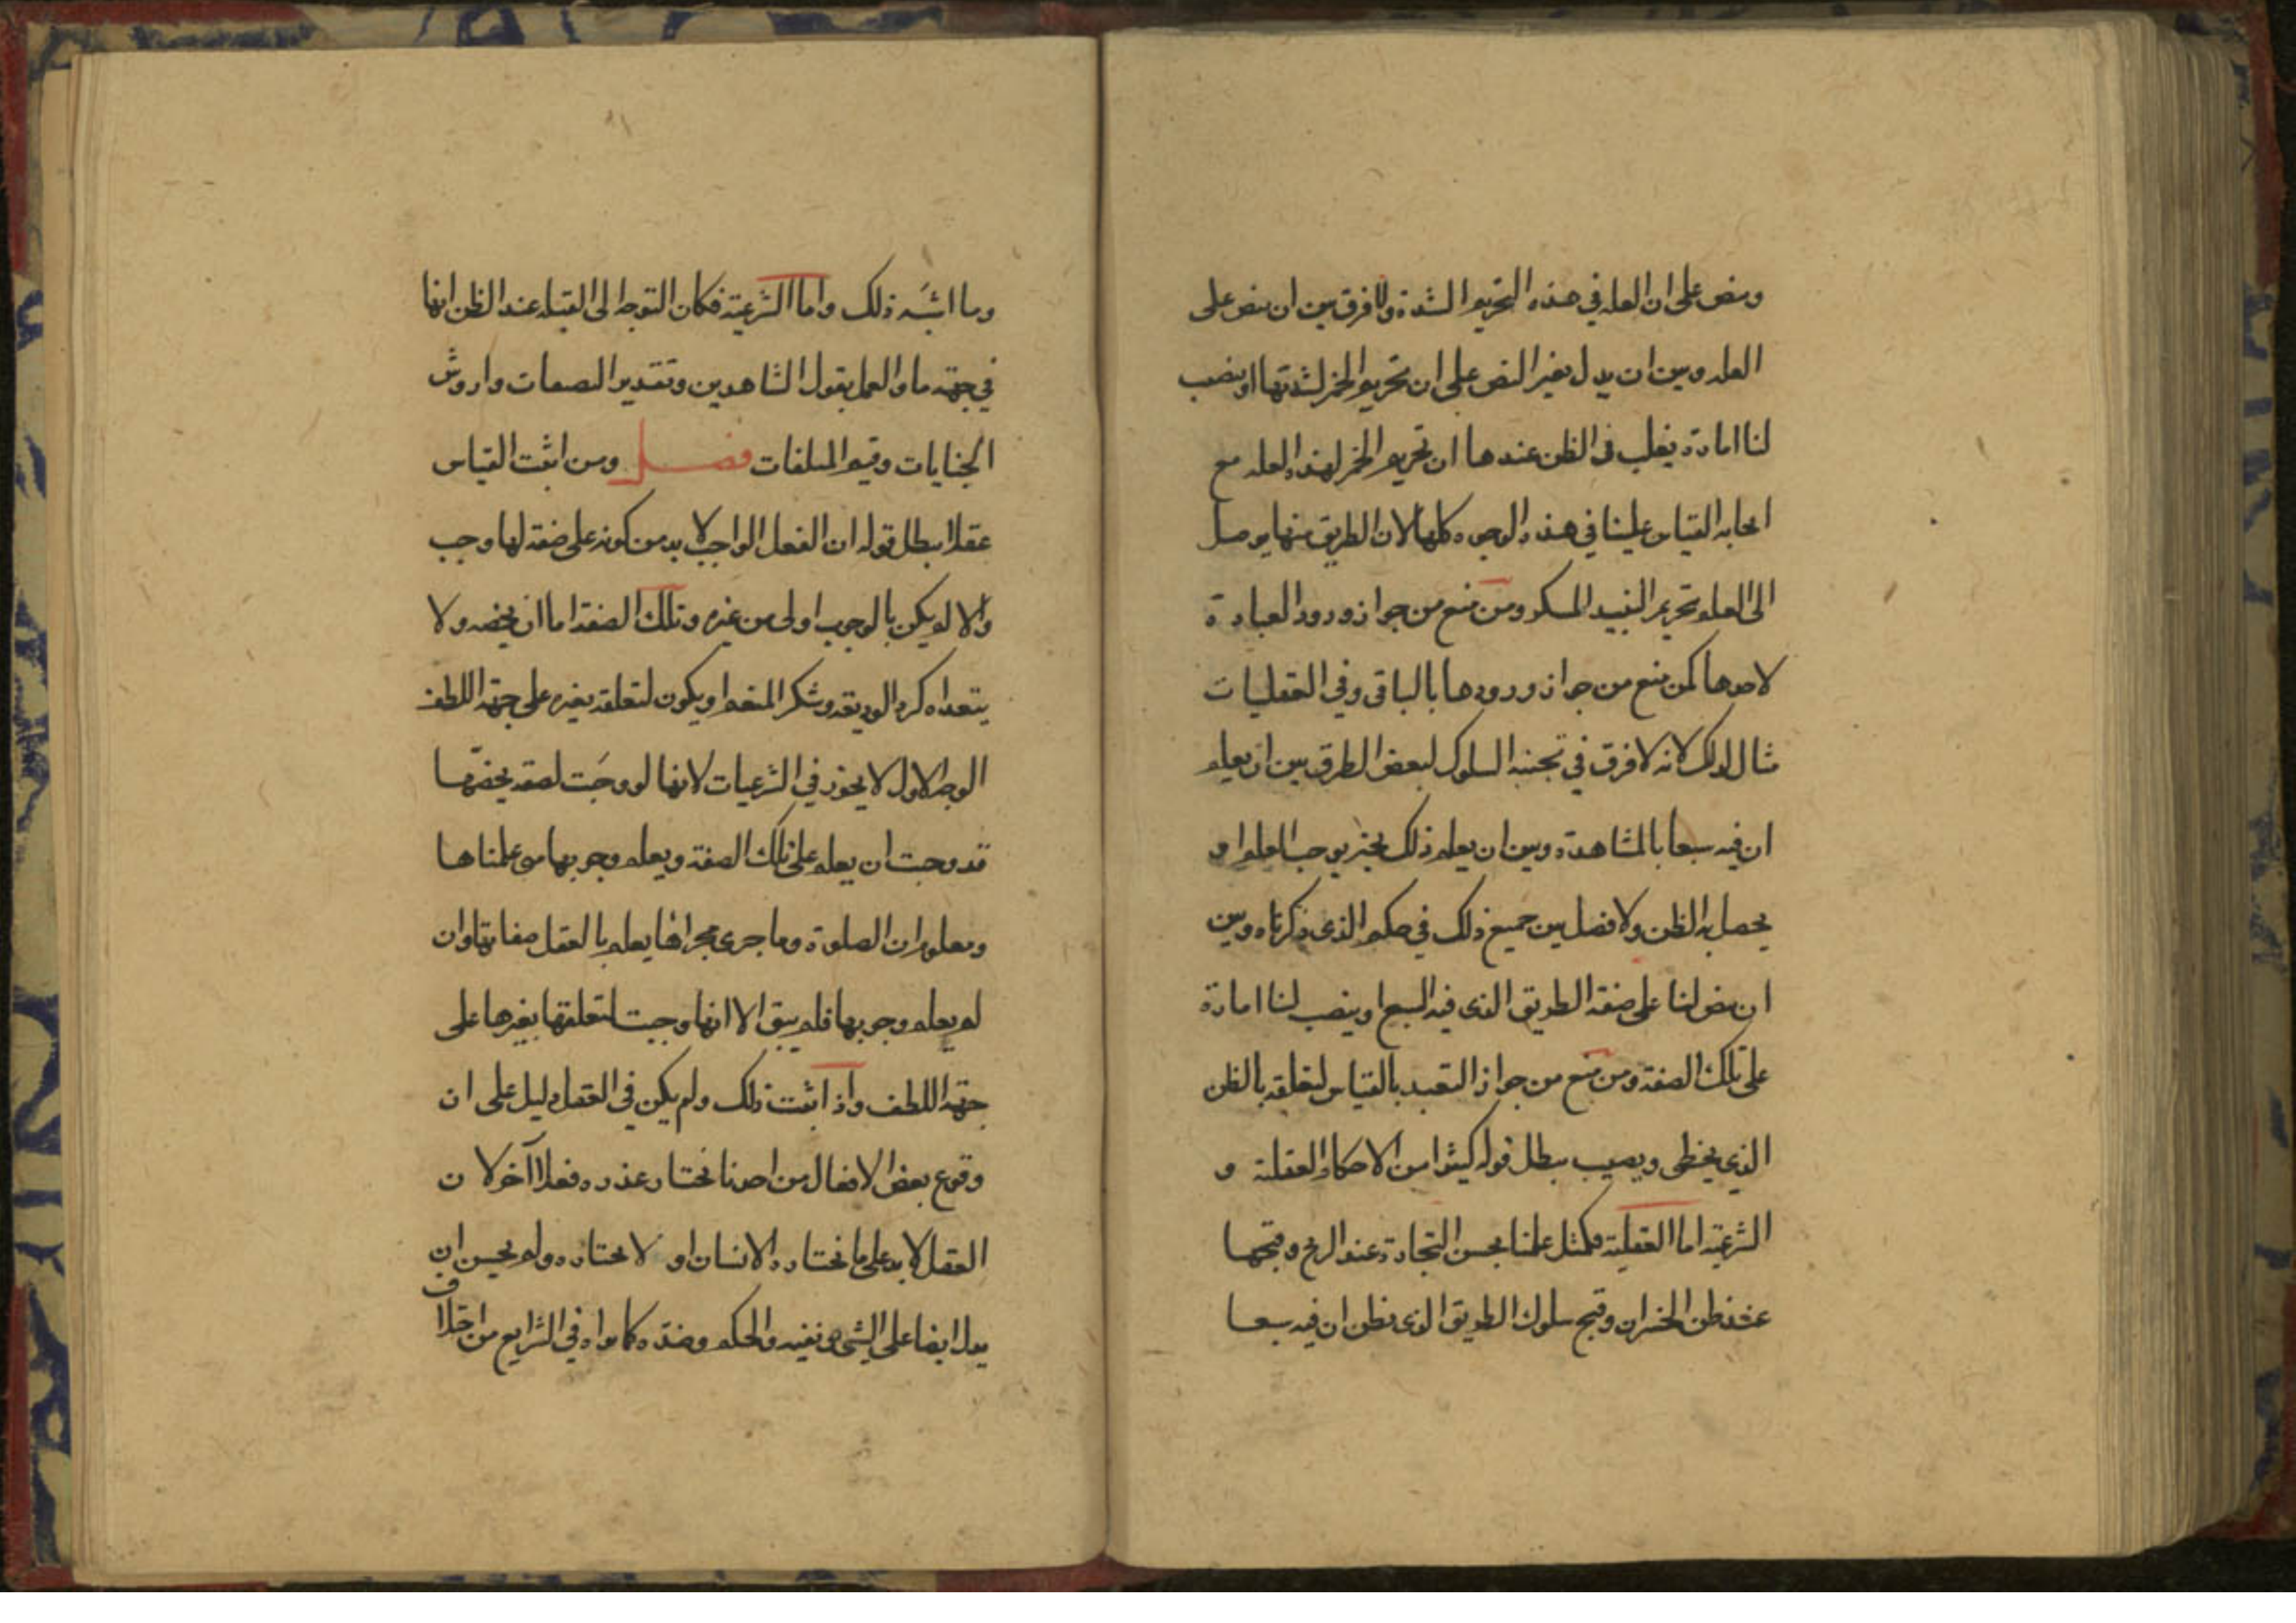 وينص على ان العله في هذه التحريم الشدة ولا فرق بين ان ينص على
العله وبين ان يدل بغير النص على ان تحريم الخمر لشدتها او ينصب
لنا امارة يغلب في الظن عندها ان تحريم الخمر لهذه العله مع
ايجابه القياس علينا في هذه الوجوه كلها لان الطريق منها يوصل
الى العلم بتحريم النبيد المسكر ومن منع من جواز ورود العبادة
لاحدها كمن منع من جواز ورودها بالباقى وفي العقليات
مثال لذلك لانه لا فرق في تجنبه السلوك لبعض الطرق بين ان يعلم
ان فيه سبعا بالمشاهدة وبين ان يعلم ذلك بخبر يوجب العلم او
يحصل به الظن ولا فصل بين جميع ذلك في حكم الذى ذكرناه وبين
ان ينص لنا على صفة الطريق الذى فيه السبع او ينصب لنا امارة
على تلك الصفة ومن منع من جواز التعبد بالقياس لتعلقه بالظن
الذي يخطى ويصيب يبطل قوله كثيرا من الاحكام العقلية و
الشرعية اما العقلية فمثل علمنا بحسن التجارة عند الربح وقبحها
عند ظن الخسران وقبح سلوك الطريق الذى نظن ان فيه سبعا
وما اشبه ذلك واما الشرعية فكان التوجه الى القبله عند الظن انها
في جهة ما والعمل بقول الشاهدين وتقدير النفقات واروش
الجنايات وقيم المتلفات فصل ومن اثبت القياس
عقلا يبطل قوله ان الفعل الواجب لا بد من كونه على صفة لها وجب
والا لم يكن بالوجوب اولى من غيره وتلك الصفة اما ان يخصه ولا
يتعداه كرد الوديعه وشكر المنعم او يكون لتعلقه بغيره على جهة اللطف
الوجه الاول لا يجوز في الشرعيات لانها لو وجبت لصفة يخصها
قد وجبت ان يعلم على تلك الصفة ويعلم وجوبها متى علمناها
ومعلوم ان الصلوة وما جرى مجراها يعلم بالعقل صفاتها وان
لم يعلم وجوبها فلم يبق الا انها وجبت لتعلقها بغيرها على
جهة اللطف واذا ثبت ذلك ولم يكن في العقل دليل على ان
وقوع بعض الافعال من احدنا نختار عنده فعلا آخر لان
العقل لا يدل على ما نختاره الانسان او لا يختاره ولم يحسن ان
يدل ايضا على الشي ونفيه والحكم وضده كما يراه في الشرايع من اختلاف